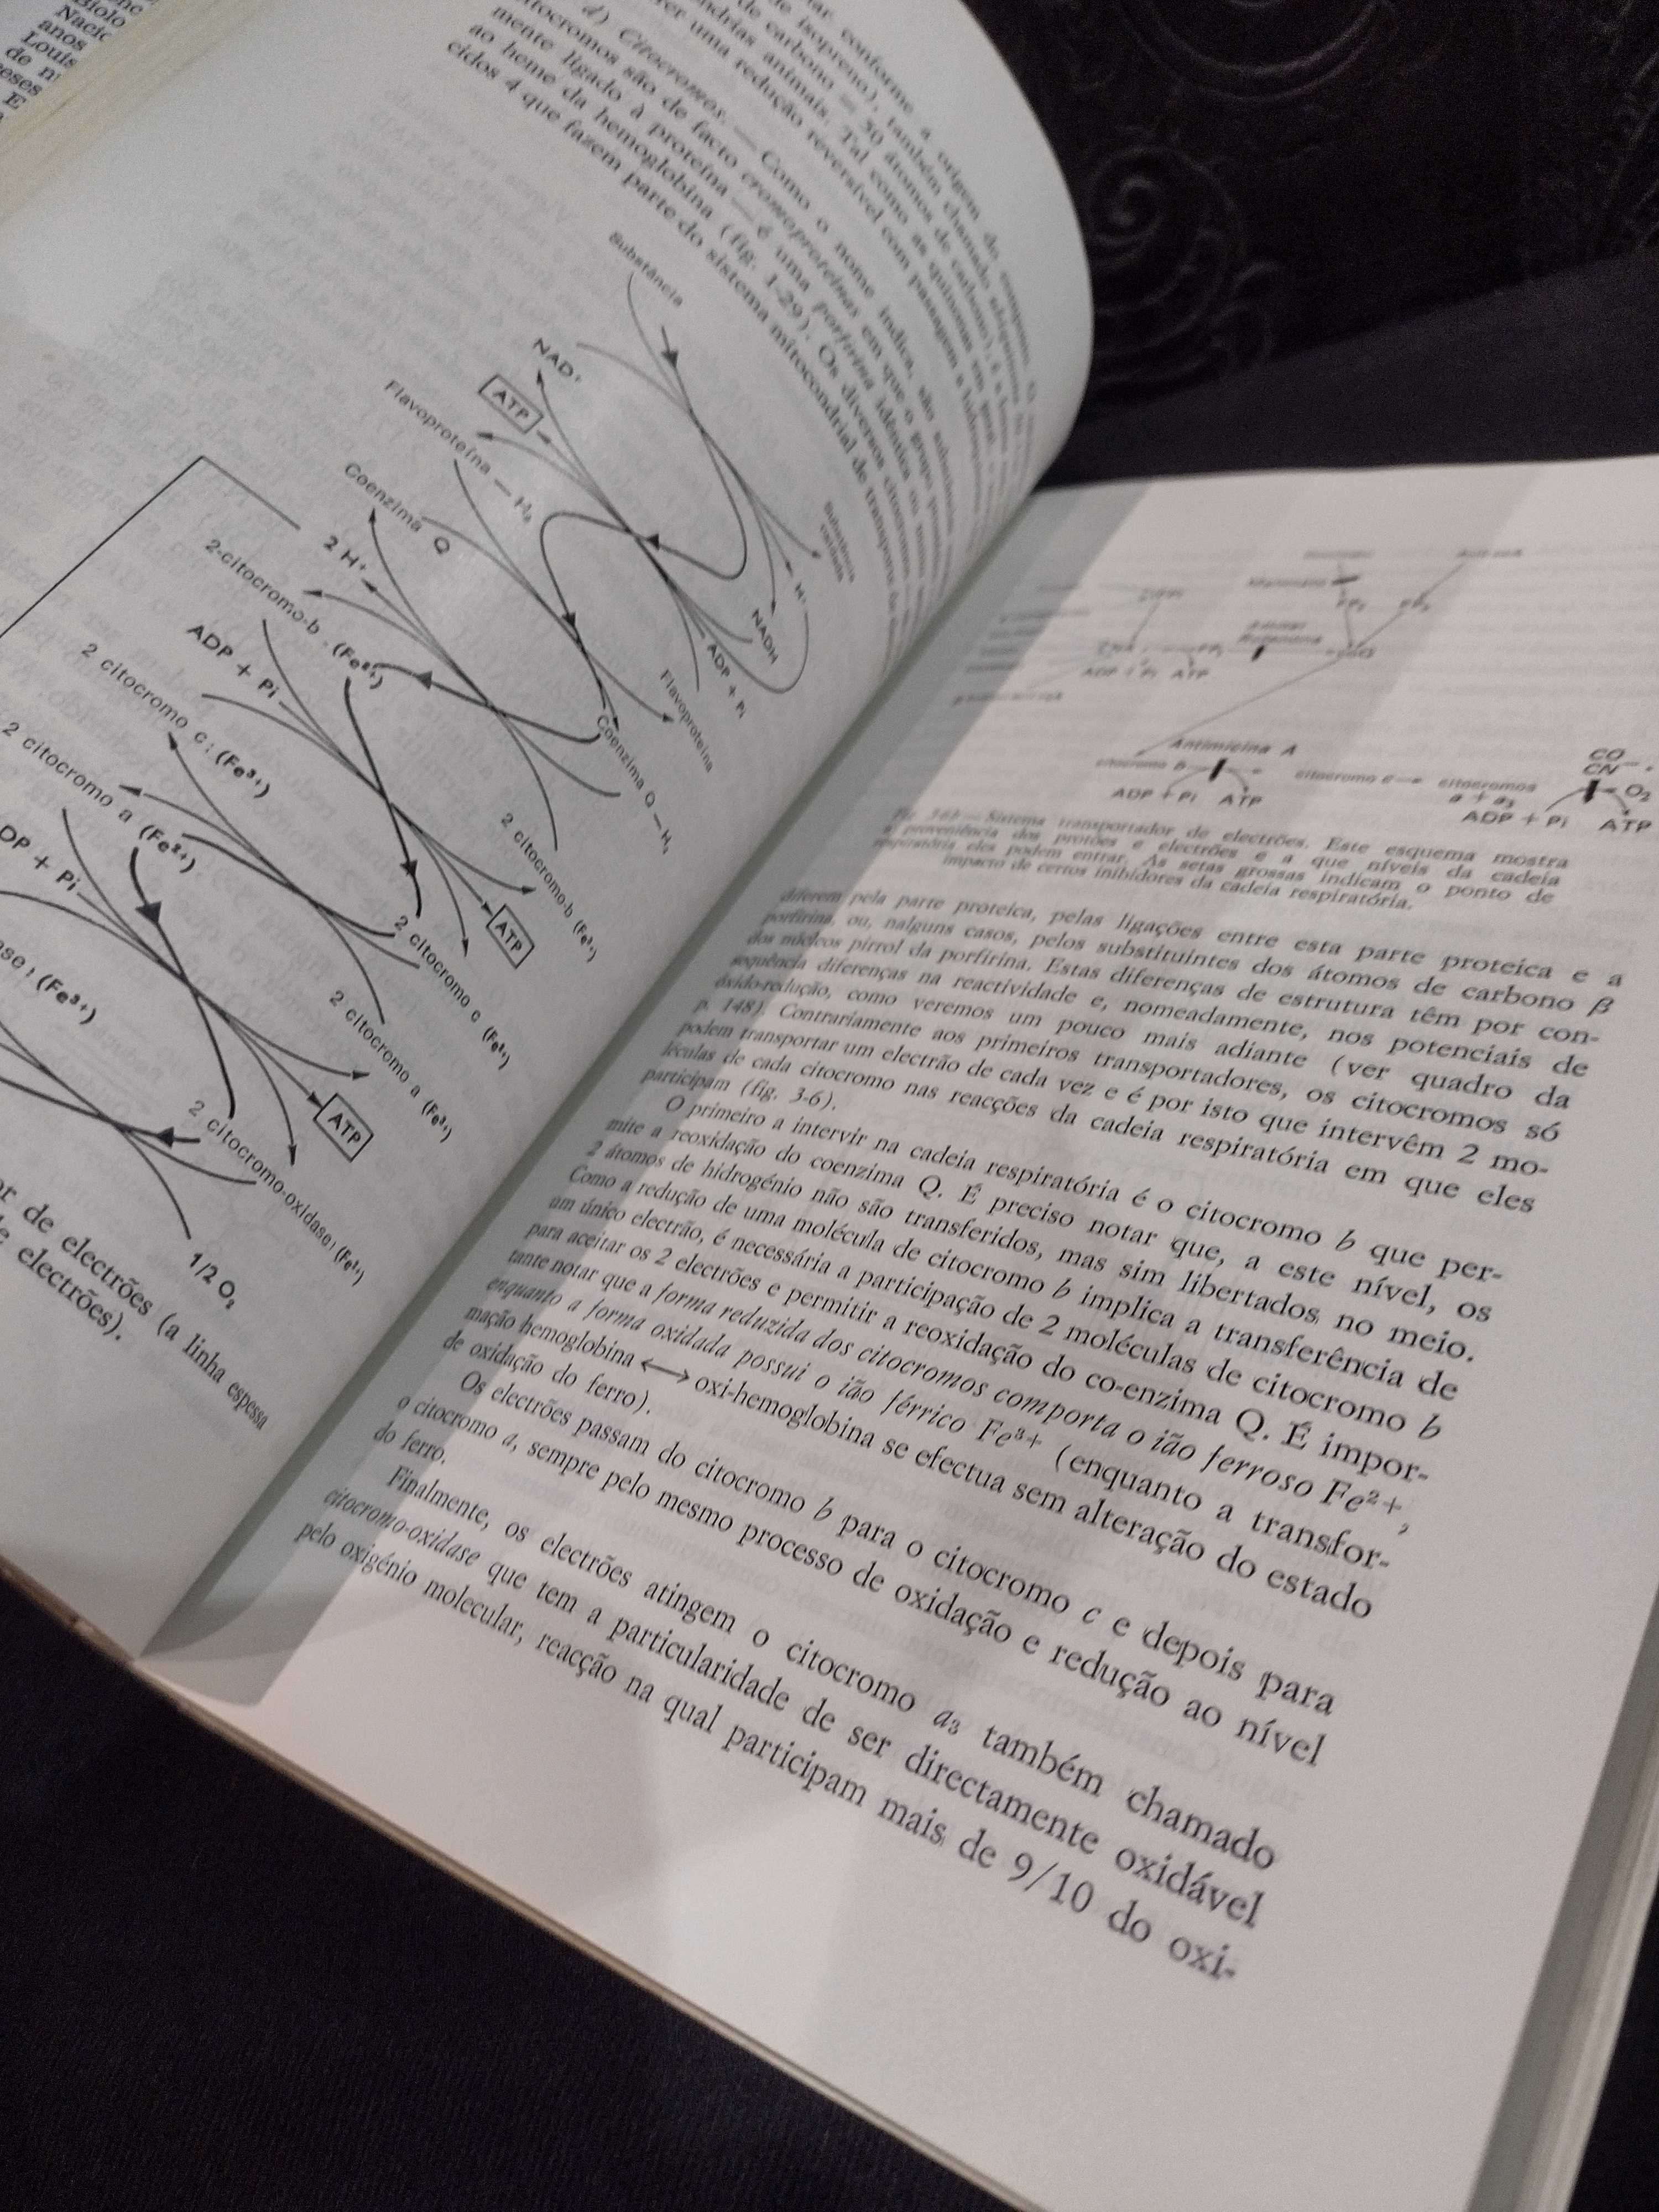 Biolo
Nacio
anos
Louis
de n
eses
E
ar conforme a origem do composto. O
de isopreno), também chamado ubiquinona
de carbono = 50 átomos de carbono) é a
ndrias animais. Tal como as quinonas em geral
rer uma redução reversível com passagem a hidroquinona
d) Citocromos. — Como o nome indica, são
itocromos são de facto cromoproteínas em que o grupo
mente ligado à proteína — é uma porfirina idêntica ou
ao heme da hemoglobina (fig. 1-29). Os diversos citocromos,
cidos 4 que fazem parte do sistema mitocondrial de transporte de
Substância
NAD+
ATP
Flavoproteína — H2
Substância oxidada
Coenzima Q
H+
2 H+
NADH
2-citocromo-b . (Fe2+)
ADP + Pi
Flavoproteína
ADP + Pi
Coenzima Q — H2
2 citocromo c ; (Fe3+)
2 citocromo-b (Fe3+)
2 citocromo a (Fe2+)
ATP
DP + Pi
2 citocromo c (Fe2+)
ase ; (Fe3+)
2 citocromo a (Fe3+)
ATP
2 citocromo-oxidase ; (Fe2+)
1/2 O2
or de electrões (a linha espessa
e electrões).
Antimicina A
citocromo b
citocromo c
citocromos
a + a3
CO
CN—
O2
ADP + Pi ATP
ADP + Pi ATP
ADP + Pi ATP
— Sistema transportador de electrões. Este esquema mostra
a proveniência dos protões e electrões e a que níveis da cadeia
respiratória eles podem entrar. As setas grossas indicam o ponto de
impacto de certos inibidores da cadeia respiratória.
diferem pela parte proteica, pelas ligações entre esta parte proteica e a
porfirina, ou, nalguns casos, pelos substituintes dos átomos de carbono β
dos núcleos pirrol da porfirina. Estas diferenças de estrutura têm por con-
sequência diferenças na reactividade e, nomeadamente, nos potenciais de
óxido-redução, como veremos um pouco mais adiante (ver quadro da
p. 148). Contrariamente aos primeiros transportadores, os citocromos só
podem transportar um electrão de cada vez e é por isto que intervêm 2 mo-
léculas de cada citocromo nas reacções da cadeia respiratória em que eles
participam (fig. 3-6).
O primeiro a intervir na cadeia respiratória é o citocromo b que per-
mite a reoxidação do coenzima Q. É preciso notar que, a este nível, os
2 átomos de hidrogénio não são transferidos, mas sim libertados no meio.
Como a redução de uma molécula de citocromo b implica a transferência de
um único electrão, é necessária a participação de 2 moléculas de citocromo b
para aceitar os 2 electrões e permitir a reoxidação do co-enzima Q. É impor-
tante notar que a forma reduzida dos citocromos comporta o ião ferroso Fe2+,
enquanto a forma oxidada possui o ião férrico Fe3+ (enquanto a transfor-
mação hemoglobina ⟷ oxi-hemoglobina se efectua sem alteração do estado
de oxidação do ferro).
Os electrões passam do citocromo b para o citocromo c e depois para
o citocromo a, sempre pelo mesmo processo de oxidação e redução ao nível
do ferro.
Finalmente, os electrões atingem o citocromo a3 também chamado
citocromo-oxidase que tem a particularidade de ser directamente oxidável
pelo oxigénio molecular, reacção na qual participam mais de 9/10 do oxi-